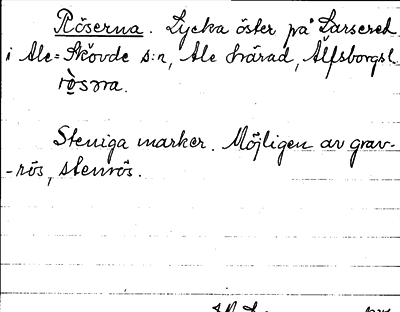 Röserna. Lycka öster på Larsered
i Ale=Skövde s:n, Ale härad, Älfsborgs l
rò̤səra.
Steniga marker. Möjligen av grav-
-rös, stenrös.